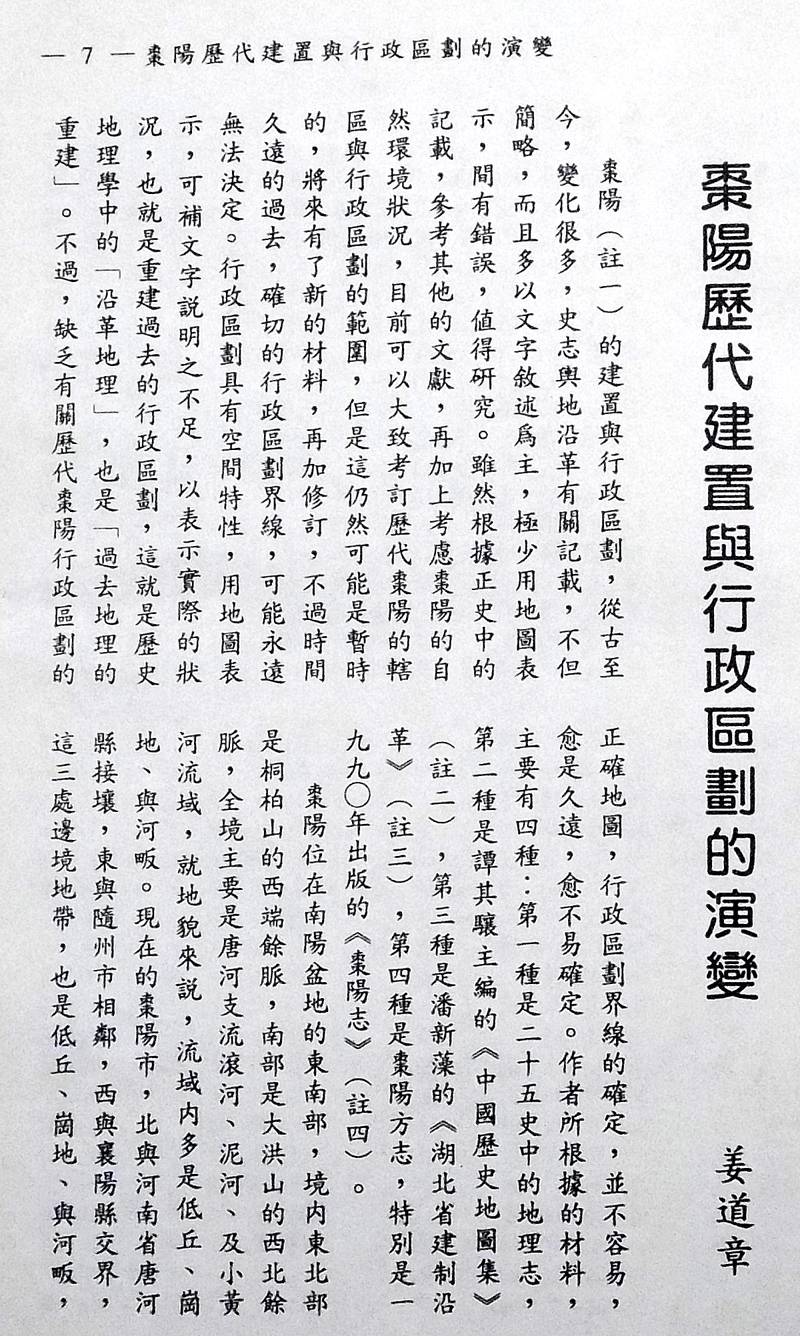 — 7 — 棗陽歷代建置與行政區劃的演變
棗陽歷代建置與行政區劃的演變
姜道章
棗陽（註一）的建置與行政區劃，從古至
今，變化很多，史志輿地沿革有關記載，不但
簡略，而且多以文字敘述爲主，極少用地圖表
示，間有錯誤，值得研究。雖然根據正史中的
記載，參考其他的文獻，再加上考慮棗陽的自
然環境狀況，目前可以大致考訂歷代棗陽的轄
區與行政區劃的範圍，但是這仍然可能是暫時
的，將來有了新的材料，再加修訂，不過時間
久遠的過去，確切的行政區劃界線，可能永遠
無法決定。行政區劃具有空間特性，用地圖表
示，可補文字説明之不足，以表示實際的狀
況，也就是重建過去的行政區劃，這就是歷史
地理學中的「沿革地理」，也是「過去地理的
重建」。不過，缺乏有關歷代棗陽行政區劃的
正確地圖，行政區劃界線的確定，並不容易，
愈是久遠，愈不易確定。作者所根據的材料，
主要有四種：第一種是二十五史中的地理志，
第二種是譚其驤主編的《中國歷史地圖集》
（註二），第三種是潘新藻的《湖北省建制沿
革》（註三），第四種是棗陽方志，特別是一
九九〇年出版的《棗陽志》（註四）。
棗陽位在南陽盆地的東南部，境内東北部
是桐柏山的西端餘脈，南部是大洪山的西北餘
脈，全境主要是唐河支流滾河、泥河、及小黃
河流域，就地貌來説，流域内多是低丘、崗
地、與河畈。現在的棗陽市，北與河南省唐河
縣接壤，東與隨州市相鄰，西與襄陽縣交界，
這三處邊境地帶，也是低丘、崗地、與河畈，